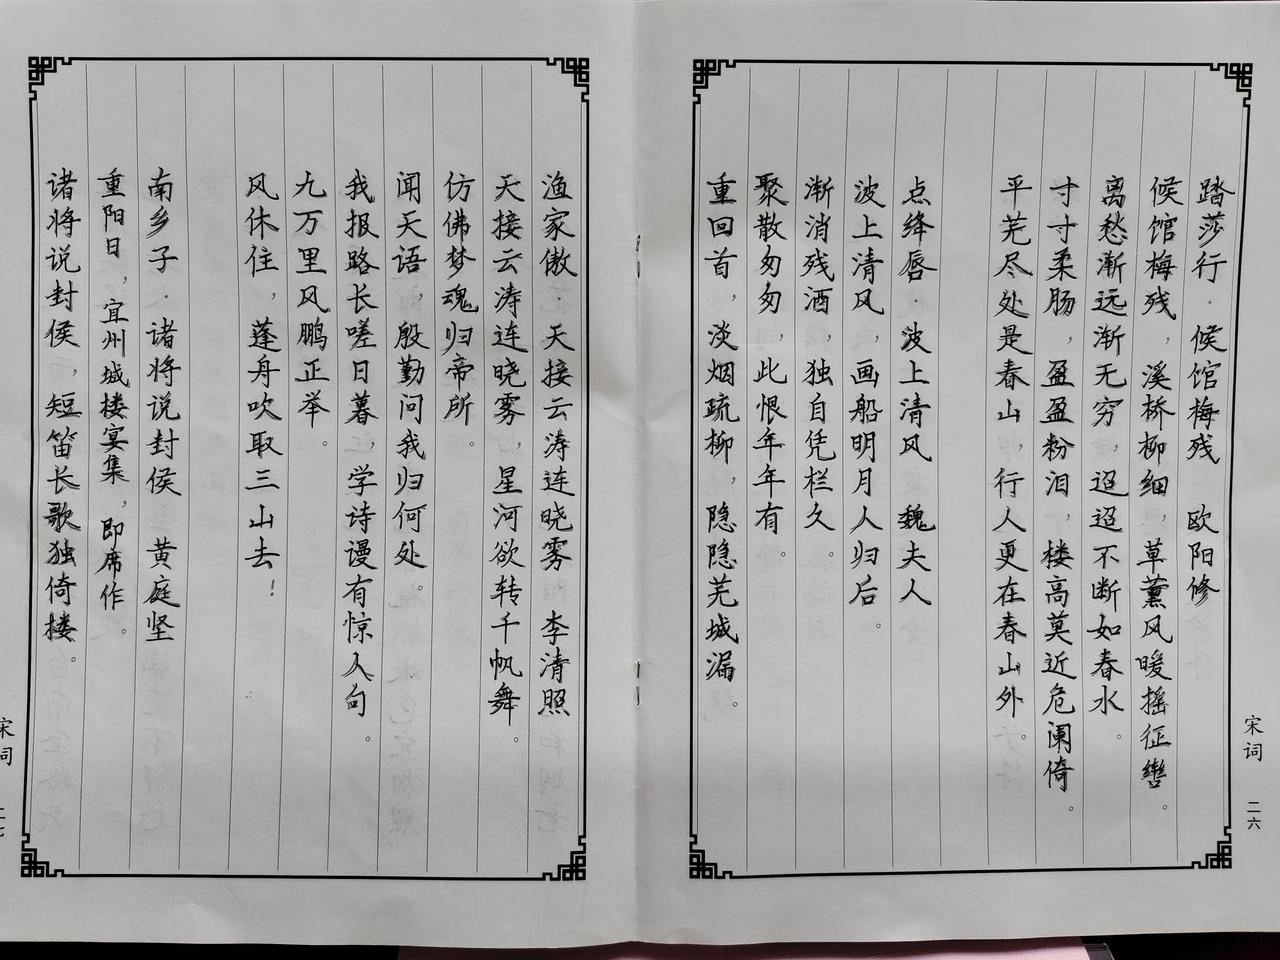 踏莎行·候馆梅残 欧阳修
候馆梅残，溪桥柳细，草薰风暖摇征辔。
离愁渐远渐无穷，迢迢不断如春水。
寸寸柔肠，盈盈粉泪，楼高莫近危阑倚。
平芜尽处是春山，行人更在春山外。
点绛唇·波上清风 魏夫人
波上清风，画船明月人归后。
渐消残酒，独自凭栏久。
聚散匆匆，此恨年年有。
重回首，淡烟疏柳，隐隐芜城漏。
宋词 二六
渔家傲·天接云涛连晓雾 李清照
天接云涛连晓雾，星河欲转千帆舞。
仿佛梦魂归帝所。
闻天语，殷勤问我归何处。
我报路长嗟日暮，学诗谩有惊人句。
九万里风鹏正举。
风休住，蓬舟吹取三山去！
南乡子·诸将说封侯 黄庭坚
重阳日，宜州城楼宴集，即席作。
诸将说封侯，短笛长歌独倚楼。
宋词 二七